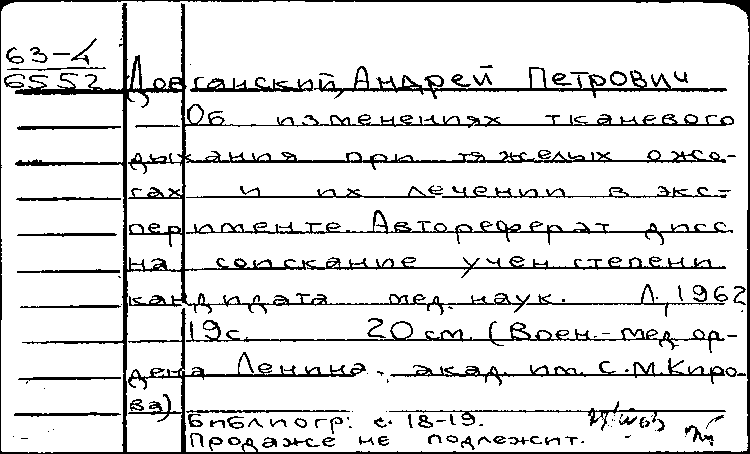 63-4
6552
Довганский, Андрей Петрович
Об изменениях тканевого
дыхания при тяжелых ожо-
гах и их лечении в экс-
перименте. Автореферат дисс.
на соискание учен. степени
кандидата мед. наук. Л., 1962
19 с. 20 см. (Воен.-мед. ор-
дена Ленина. акад. им. С.М.Киро-
ва)
Библиогр: с. 18-19.
Продаже не подлежит.